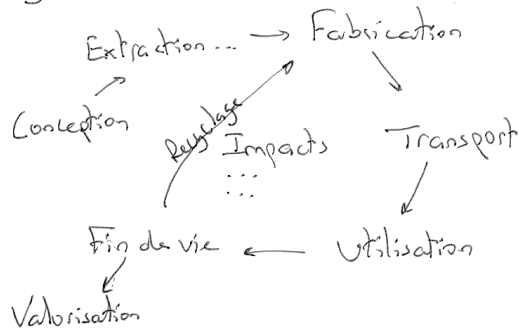 Extraction... → Fabrication
Conception
Recyclage
Impacts
...
...
Transport
Fin de vie ← Utilisation
Valorisation